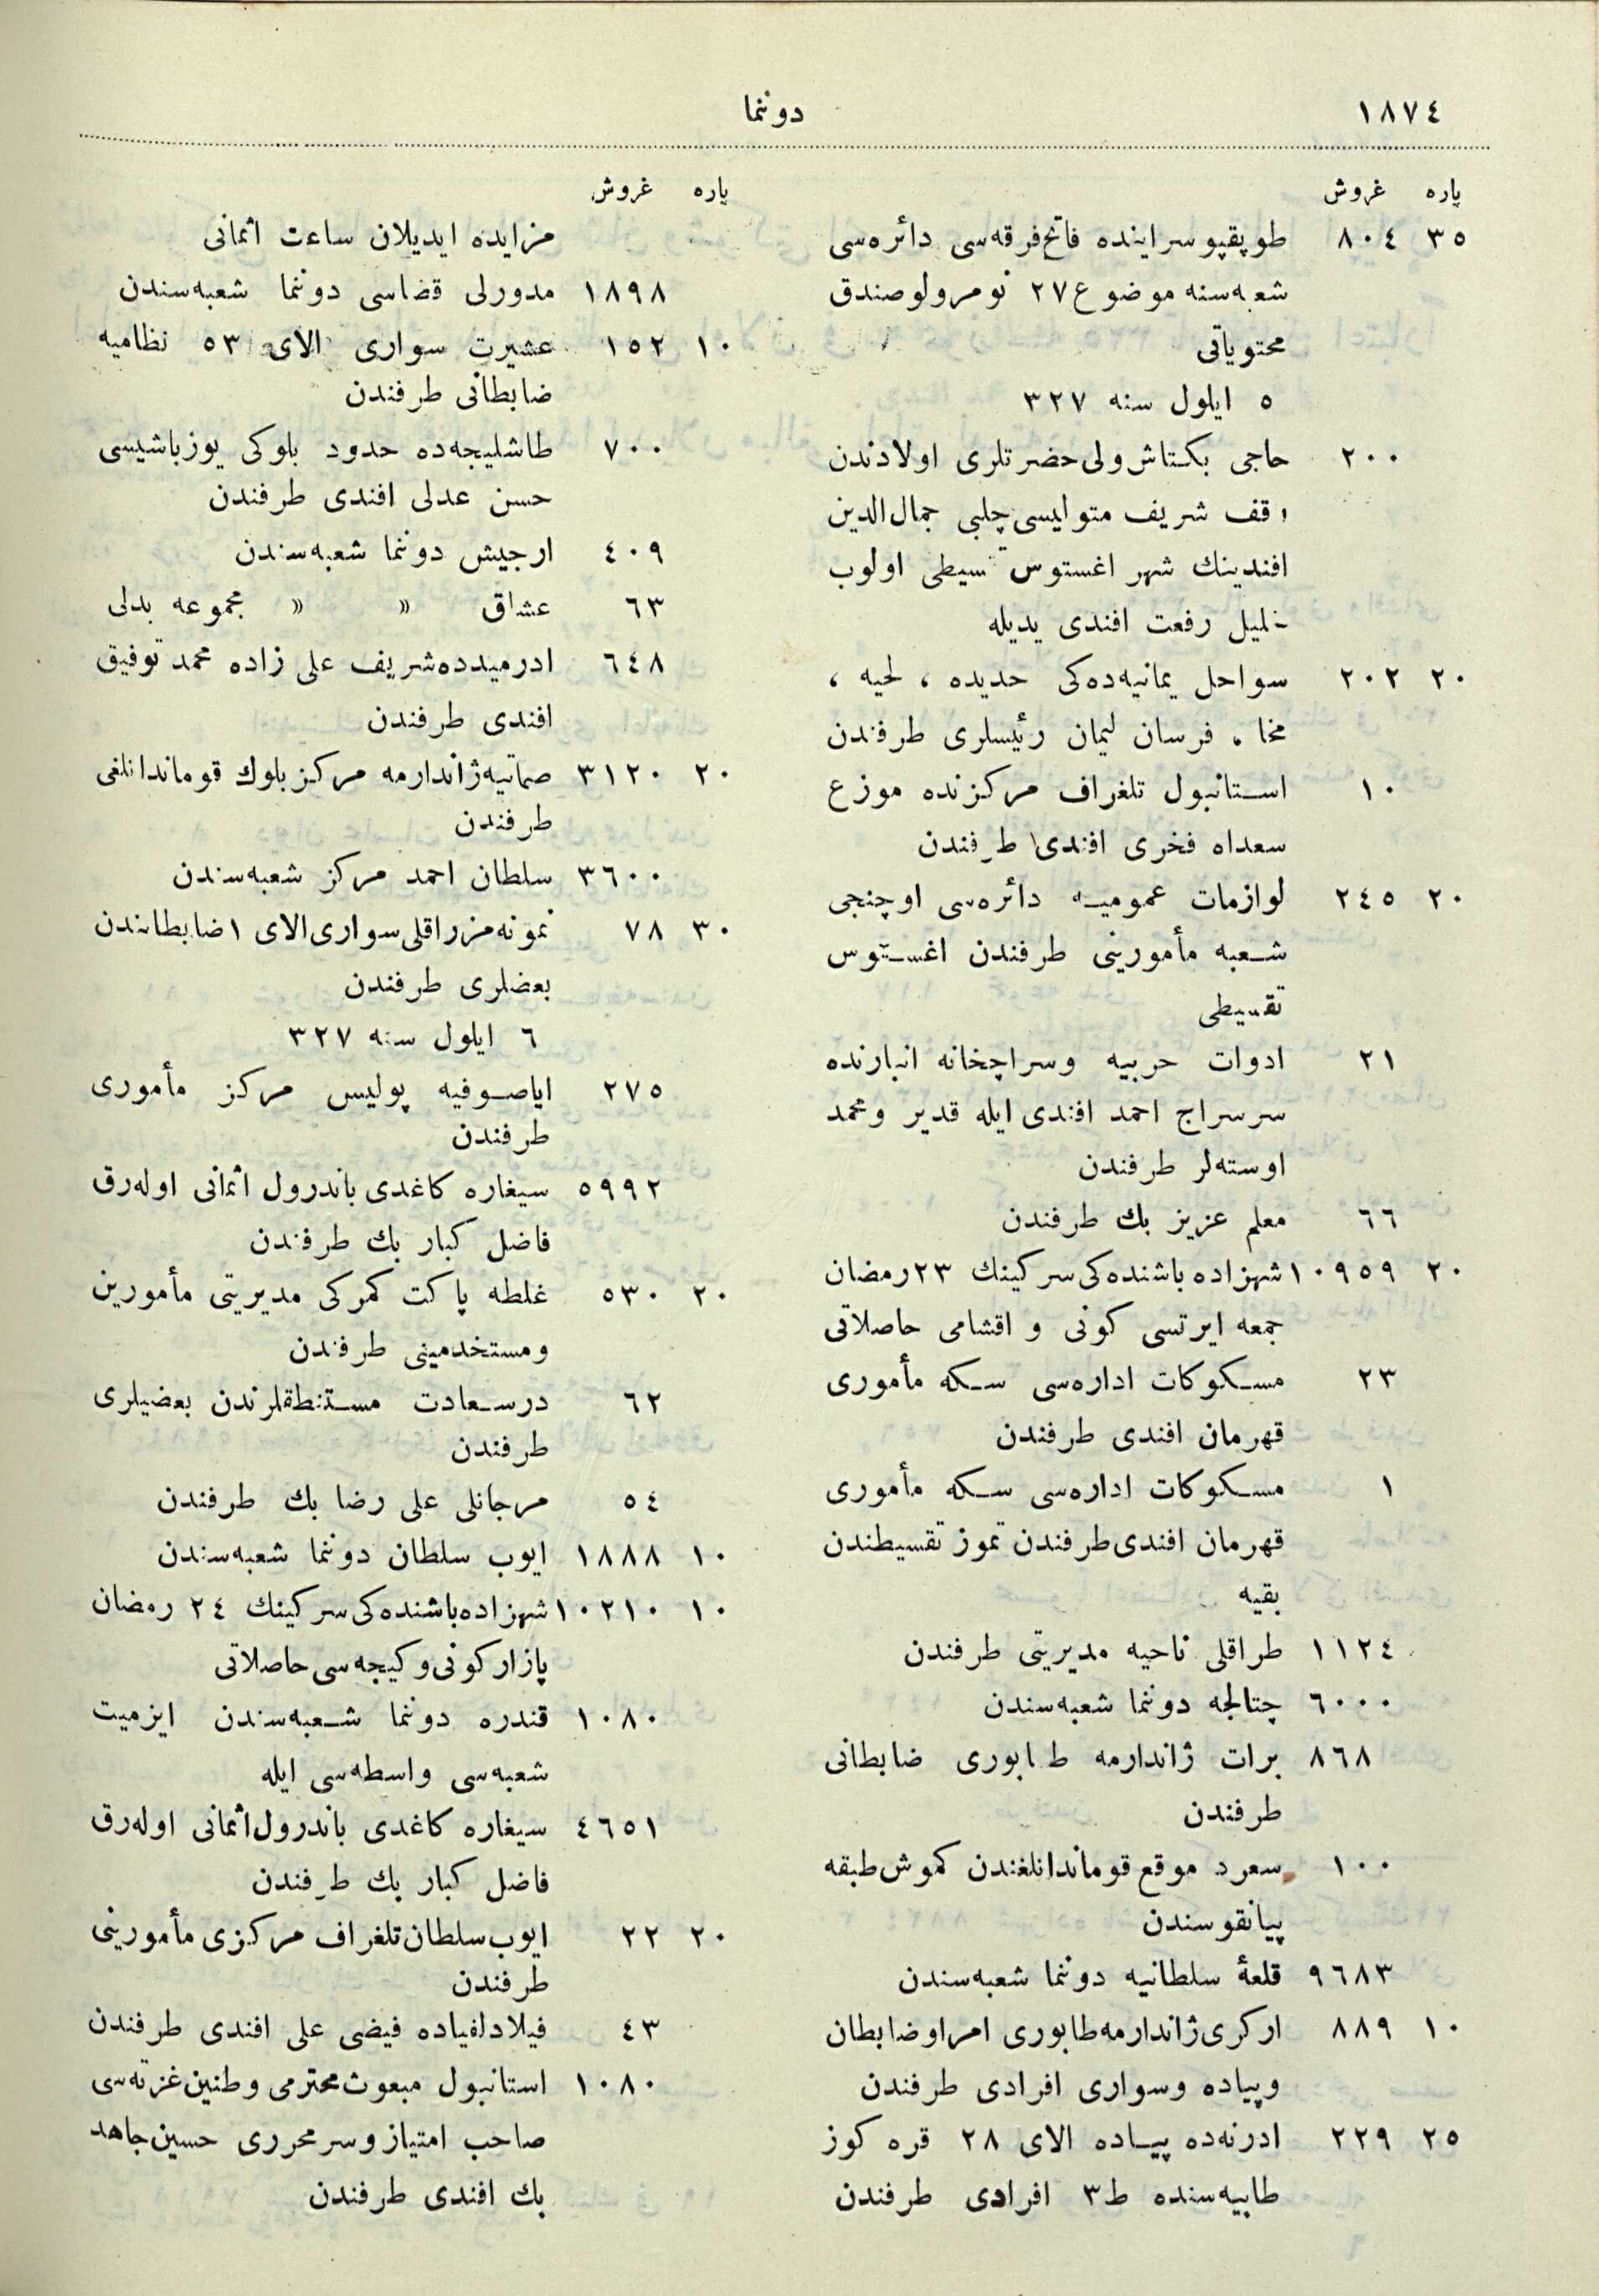 ١٨٧٤
دوننما
پاره غروش
٣٥ ٨٠٤ طوپقپو سراینده فاتح فرقه‌سی دائره‌سی
شعبه‌سنه موضوع ٢٧ نومرولو صندق
محتویاتی
٥ ایلول سنه ٣٢٧
٢٠٠ حاجی بکتاش ولی حضرتلری اولادندن
وقف شریف متولیسی چلبی جمال‌الدین
افندینك شهر اغستوس تقسیطی اولوب
خلیل رفعت افندی یدیله
٢٠ ٢٠٢ سواحل یمانیه‌ده‌کی حدیده ، لحیه ،
مخا ، فرسان لیمان رئیسلری طرفندن
١٠ استانبول تلغراف مرکزنده موزع
سعداه فخری افندی طرفندن
٢٠ ٢٤٥ لوازمات عمومیه دائره‌سی اوچنجی
شعبه مأمورینی طرفندن اغستوس
تقسیطی
٢١ ادوات حربیه وسراچخانه انبارنده
سرسراج احمد افندی ایله قدیر ومحمد
اوسته‌لر طرفندن
٦٦ معلم عزیز بك طرفندن
٢٠ ١٠٩٥٩ شهزاده‌باشنده‌کی سرکینك ٢٣ رمضان
جمعه ایرتسی کونی و اقشامی حاصلاتی
٢٣ مسکوکات اداره‌سی سکه مأموری
قهرمان افندی طرفندن
١ مسکوکات اداره‌سی سکه مأموری
قهرمان افندی طرفندن تموز تقسیطندن
بقیه
١١٢٤ طراقلی ناحیه مدیریتی طرفندن
٦٠٠٠ چتالجه دوننما شعبه‌سندن
٨٦٨ برات ژاندارمه طابوری ضابطانی
طرفندن
١٠٠ سعرد موقع قوماندانلغندن کموش طبقه
پیانقوسندن
٩٦٨٣ قلعهٔ سلطانیه دوننما شعبه‌سندن
١٠ ٨٨٩ ارکری ژاندارمه طابوری امرا وضابطان
وپیاده وسواری افرادی طرفندن
٢٥ ٢٢٩ ادرنه‌ده پیاده الای ٢٨ قره کوز
طابیه‌سنده ط٣ افرادی طرفندن
پاره غروش
مزایده ایدیلان ساعت اثمانی
١٨٩٨ مدورلی قضاسی دوننما شعبه‌سندن
١٠ ١٥٢ عشیرت سواری الای ٥٣ نظامیه
ضابطانی طرفندن
٧٠٠ طاشلیجه‌ده حدود بلوکی یوزباشیسی
حسن عدلی افندی طرفندن
٤٠٩ ارجیش دوننما شعبه‌سندن
٦٣ عشاق » » مجموعه بدلی
٦٤٨ ادرمیدده شریف علی زاده محمد توفیق
افندی طرفندن
٢٠ ٣١٢٠ صماتیه ژاندارمه مرکز بلوك قوماندانلغی
طرفندن
٣٦٠٠ سلطان احمد مرکز شعبه‌سندن
٣٠ ٧٨ نمونه مزراقلی سواری الای ١ ضابطانندن
بعضلری طرفندن
٦ ایلول سنه ٣٢٧
٢٧٥ ایاصوفیه پولیس مرکز مأموری
طرفندن
٥٩٩٢ سیغاره کاغدی باندرول اثمانی اوله‌رق
فاضل کبار بك طرفندن
٢٠ ٥٣٠ غلطه پاکت کمرکی مدیریتی مأمورین
ومستخدمینی طرفندن
٦٢ درسعادت مستنطقلرندن بعضیلری
طرفندن
٥٤ مرجانلی علی رضا بك طرفندن
١٠ ١٨٨٨ ایوب سلطان دوننما شعبه‌سندن
١٠ ١٠٢١٠ شهزاده‌باشنده‌کی سرکینك ٢٤ رمضان
پازار کونی وکیجه‌سی حاصلاتی
١٠٨٠ قندره دوننما شعبه‌سندن ایزمیت
شعبه‌سی واسطه‌سی ایله
٤٦٥١ سیغاره کاغدی باندرول اثمانی اوله‌رق
فاضل کبار بك طرفندن
٢٠ ٢٢ ایوب سلطان تلغراف مرکزی مأمورینی
طرفندن
٤٣ فیلادلفیاده فیضی علی افندی طرفندن
١٠٨٠ استانبول مبعوث محترمی وطنین غزته‌سی
صاحب امتیاز وسرمحرری حسین جاهد
بك افندی طرفندن